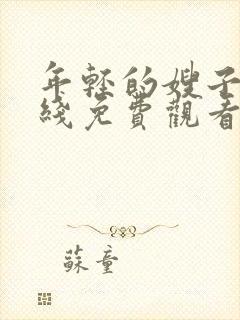 年轻的嫂子
綫免費觀看
蘇童